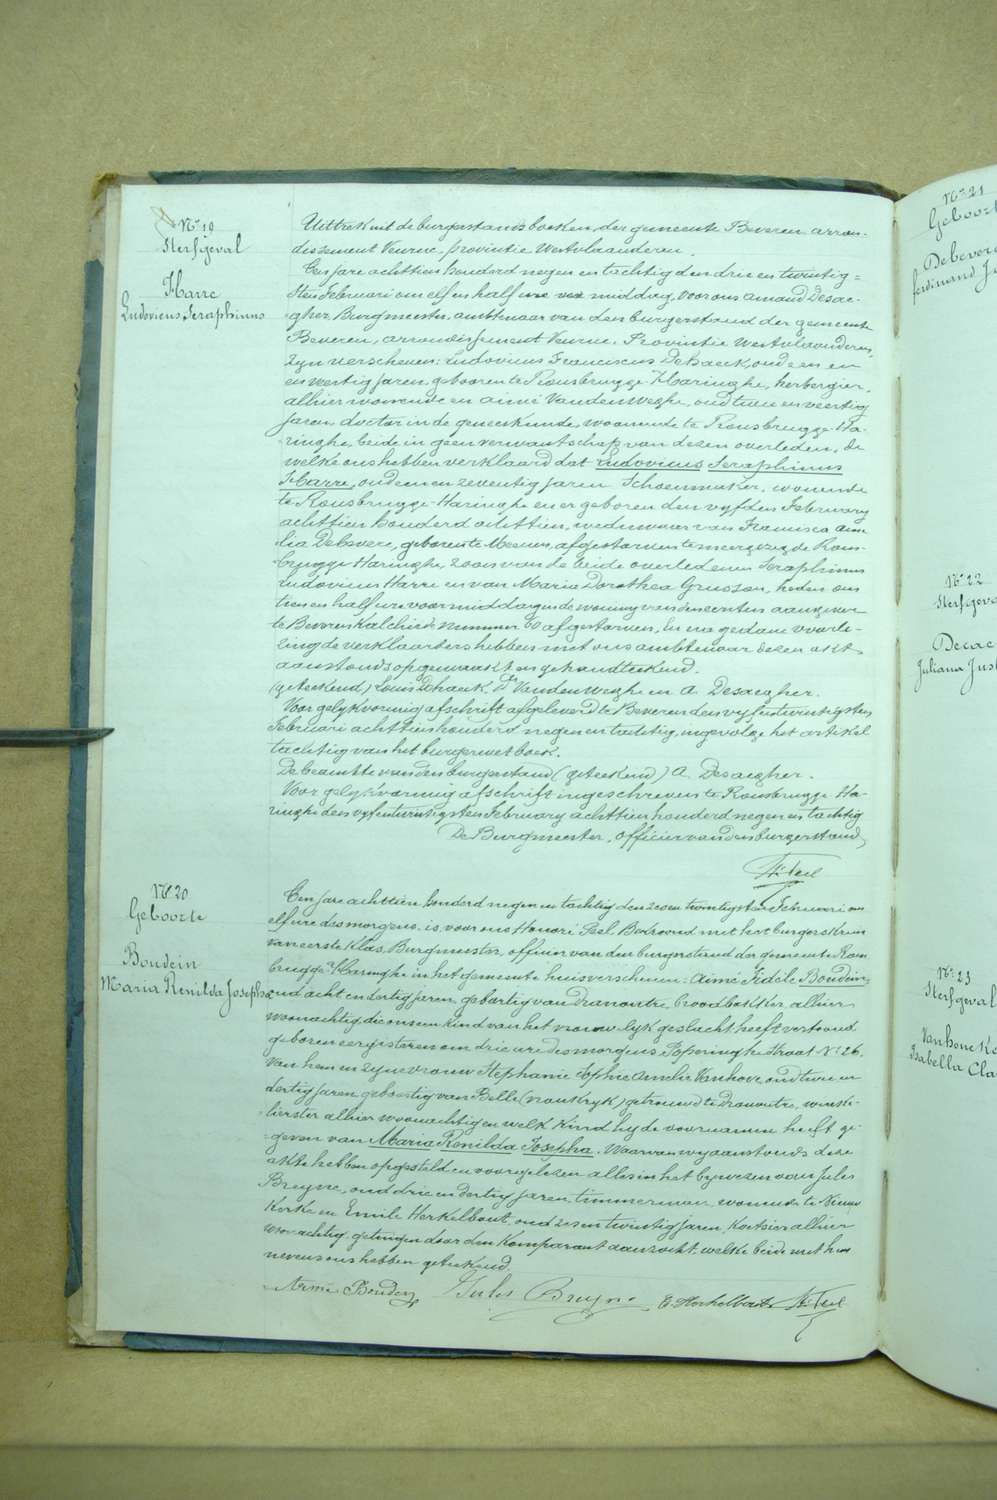 Nr 19
Sterfgeval
Harre
Ludovicus Seraphinus
Uittreksel uit de burgerstandsboeken, der gemeente Beveren arron-
dissement Veurne, provintie Westvlaanderen
Een jare achttien honderd negen en tachtig den drie en twintig-
sten Februari om elf en half ure voormiddag, voor ons Amand Desae-
gher, Burgmeester, ambtenaar van den burgerstand der gemeente
Beveren, arrondissement Veurne, Provintie Westvlaanderen,
zyn verschenen: Ludovicus Franciscus Dehaeck, oud een en
en veertig jaren, geboren te Rousbrugge Haringhe, herbergier,
alhier wonende en Aimé Vanden Weghe, oud twee en veertig
jaren, doctor in de geneeskunde, woonende te Rousbrugge-Ha-
ringhe, beide in geen verwantschap van dezen overleden, de
welke ons hebben verklaard dat Ludovicus Seraphinus
Harre, oud een en zeventig jaren Schoenmaker, wonende
te Rousbrugge-Haringhe en er geboren den vyfden February
achttien honderd achttien, weduwnaar van Francisca Ame-
lia Debevere, geboren te Meenen, afgestorven te meergezegde Rous-
brugge Haringhe, zoon van de beide overledenen Seraphinus
Ludovicus Harre en van Maria Dorothea Gruson, heden om
tien en half ure voormiddag in de woning van den eersten aangever
te Beveren Kalchide nummer 60 afgestorven, En na gedane voorle-
zing de verklaarders hebben met ons ambtenaar dezen akt
aanstonds opgemaakt en gehandteekend.
(geteekend) Louis Dehaeck, Dr Vanden Weghe en A. Desaegher.
Voor gelykvormig afschrift afgeleverd te Beveren den vyfentwintigsten
Februari achttien honderd negen en tachtig, ingevolge het artikel
tachtig van het burgerwetboek.
De beambte van den burgerstand (geteekend) A. Desaegher.
Voor gelykvormig afschrift ingeschreven te Rousbrugge Ha-
ringhe den vyfentwintigsten February achttien honderd negen en tachtig
De Burgmeester, officier van den burgerstand,
Nr 20
Geboorte
Boudein
Maria Renilda Josepha
Een jare achttien honderd negen en tachtig den zes en twintigsten Februari om
elf ure des morgens, is voor ons Honoré Seel Bedroond met het burgerskruis
van eerste klas, Burgmeester, officier van den burgerstand der gemeente Rous
brugge-Haringhe in het gemeente huis verschenen: Aimé Fidèle Boudein,
oud acht en dertig jaren, gebortig van Dranoutre, broodbakker, alhier
woonachtig, die ons een kind van het vrouwelyk geslacht heeft vertoond
geboren eergisteren om drie ure des morgens, Poperinghe straat Nr 26,
van hem en zyne vrouw Stephanie Sophie Amelie Vanhove, oud twee en
dertig jaren, gebortig van Belle (Frankryk) getrouwd te Dranoutre, winke-
lierster alhier woonachtig en welk kind hy de voornamen heeft ge-
geven van Maria Renilda Josepha. Waarvan wy aanstonds deze
akte hebben opgesteld en voorgelezen alles in het bywezen van Jules
Breyne, oud drie en dertig jaren, timmerman, wonende te Nieuw
Kerke en Emile Herkelbout, oud zes en twintig jaren, Koetsier alhier
woonachtig, getuigen door den komparant aanzocht, welke beide met hem
nevens ons hebben geteekend.
Aimé Boudein Jules Breyne E. Herkelbout
Nr 21
Geboorte
Debever
Ferdinand
Nr 22
Sterfgeval
Decae
Juliana Just
Nr 23
Sterfgeval
Vanhoucke
Isabella Cla